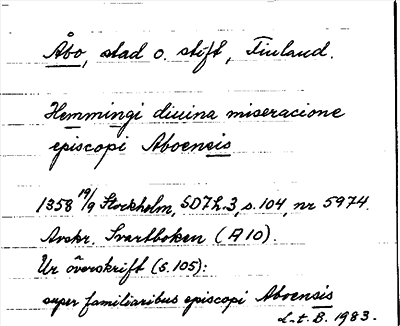 Åbo, stad o. stift, Finland.
Hemmingi diuina miseracione
episcopi Aboensis
1358 19/9 Stockholm, SD 7 h. 3, s. 104, nr 5974.
Avskr. Svartboken (A 10).
Ur överskrift (s. 105):
super familiaribus episcopi Aboensis
L.t.B. 1983.